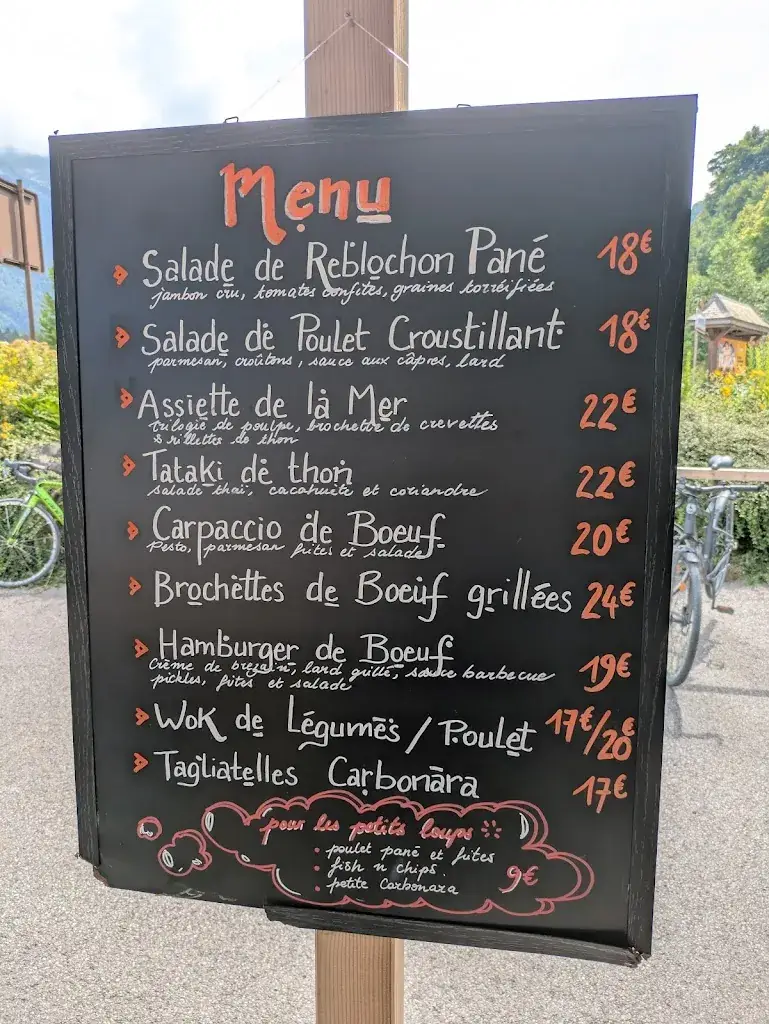 Menu
Salade de Reblochon Pané 18€
jambon cru, tomates confites, graines torréfiées
Salade de Poulet Croustillant 18€
parmesan, croûtons, sauce aux câpres, lard
Assiette de la Mer 22€
trilogie de poulpe, brochette de crevettes
& rillettes de thon
Tataki de thon 22€
salade thaï, cacahuète et coriandre
Carpaccio de Boeuf 20€
Pesto, parmesan frites et salade
Brochettes de Boeuf grillées 24€
Hamburger de Boeuf 19€
Crème de brezain, lard grillé, sauce barbecue
pickles, frites et salade
Wok de Légumes / Poulet 17€/20€
Tagliatelles Carbonara 17€
pour les petits loups
poulet pané et frites
fish n chips.
petite Carbonara
9€